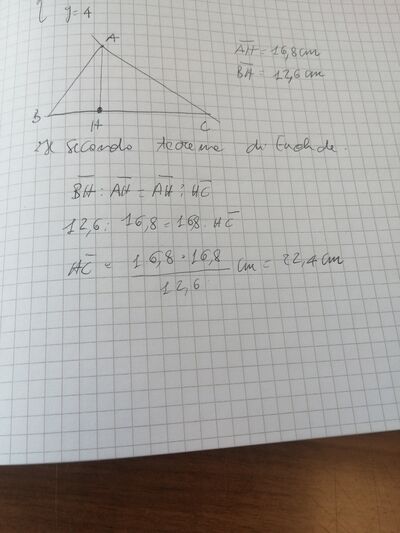 y=4
A
AH = 16,8 cm
BH = 12,6 cm
B
H
C
secondo teorema di Euclide.
BH : AH = AH : HC
12,6 : 16,8 = 168 : HC
HC = 16,8 • 16,8 / 12,6 cm = 22,4 cm